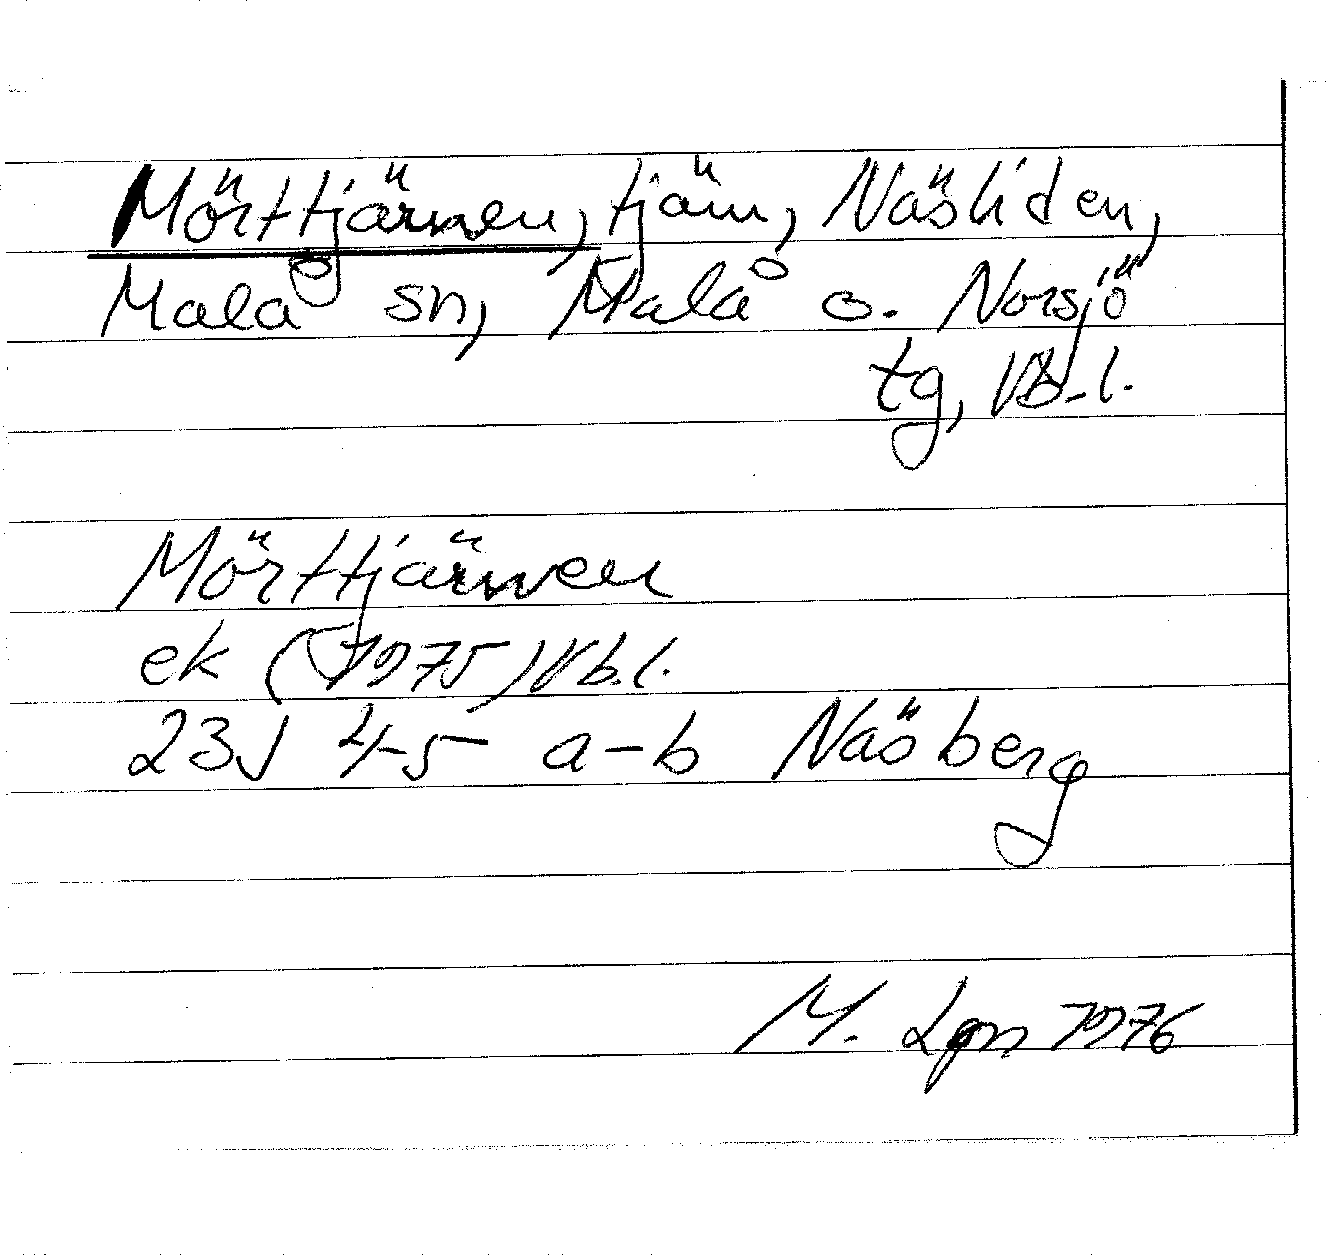 Mörttjärnen, tjärn, Näsliden,
Malå sn, Malå o. Norsjö
tg, Vb.l.
Mörttjärnen
ek (1975) Vb.l.
23J 4-5 a-b Näsberg
M. Lgn 1976